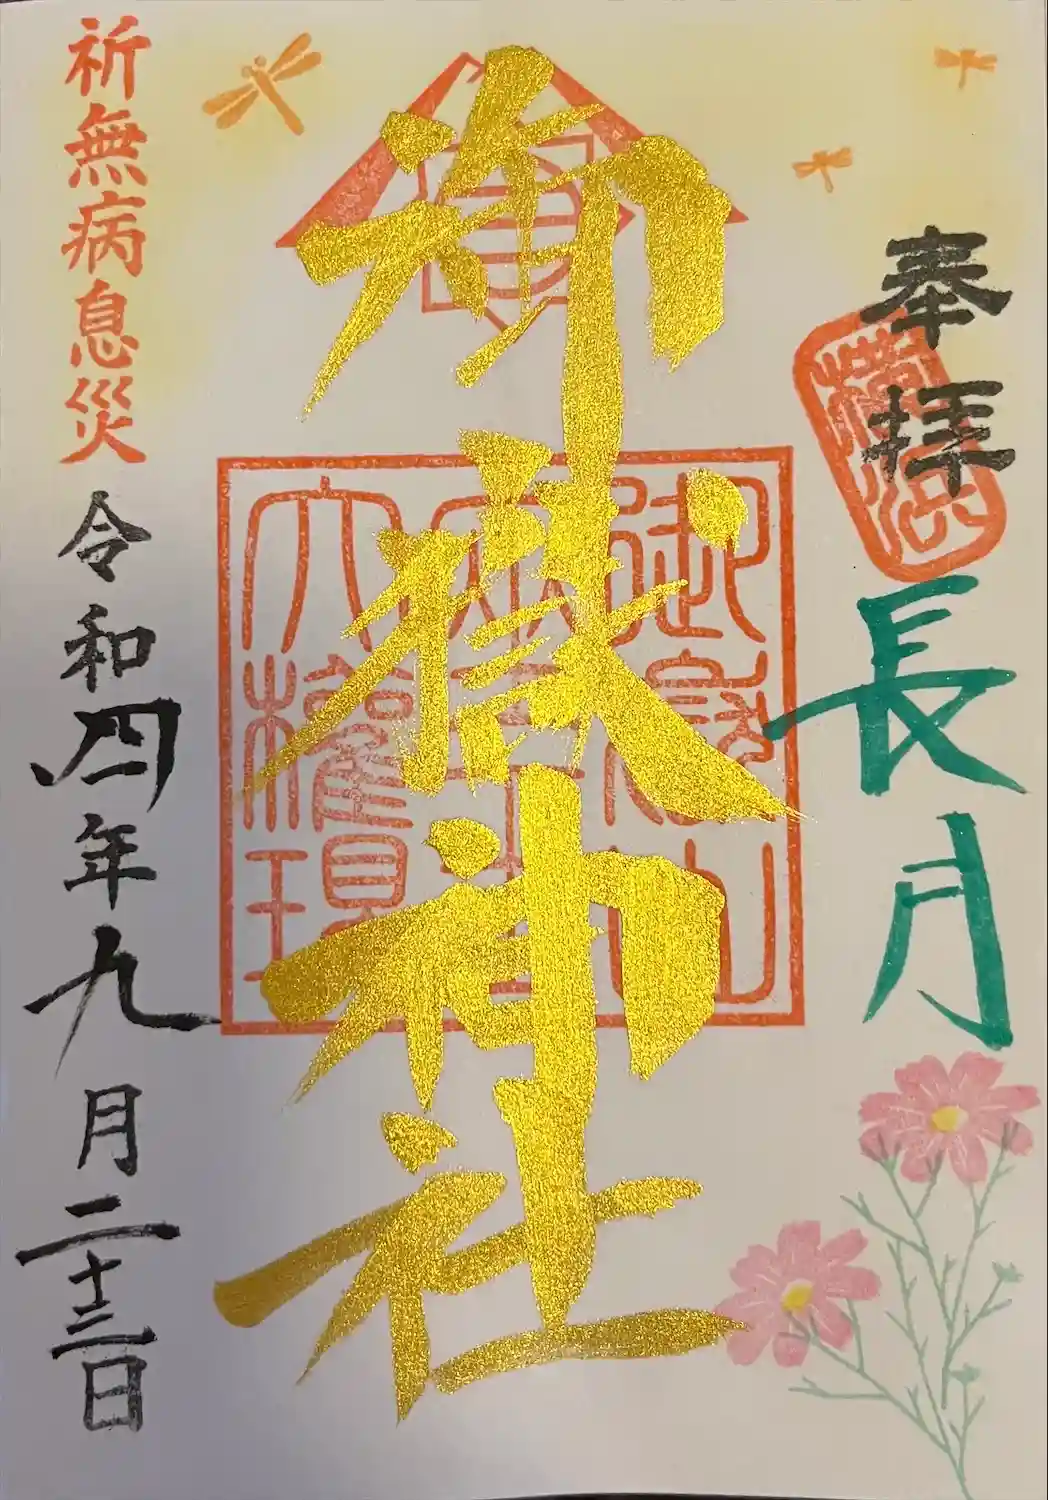 奉拝
長月
御嶽神社
御嶽山
大權現
祈無病息災
令和四年九月二十三日